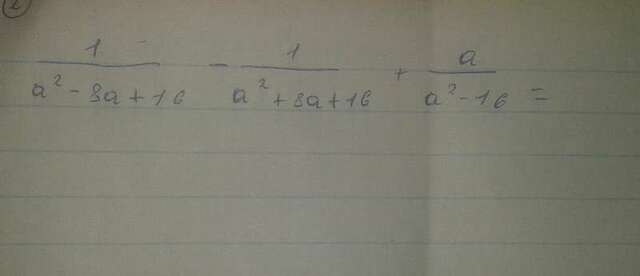 2
1/(a² - 8a + 16) - 1/(a² + 8a + 16) + a/(a² - 16) =